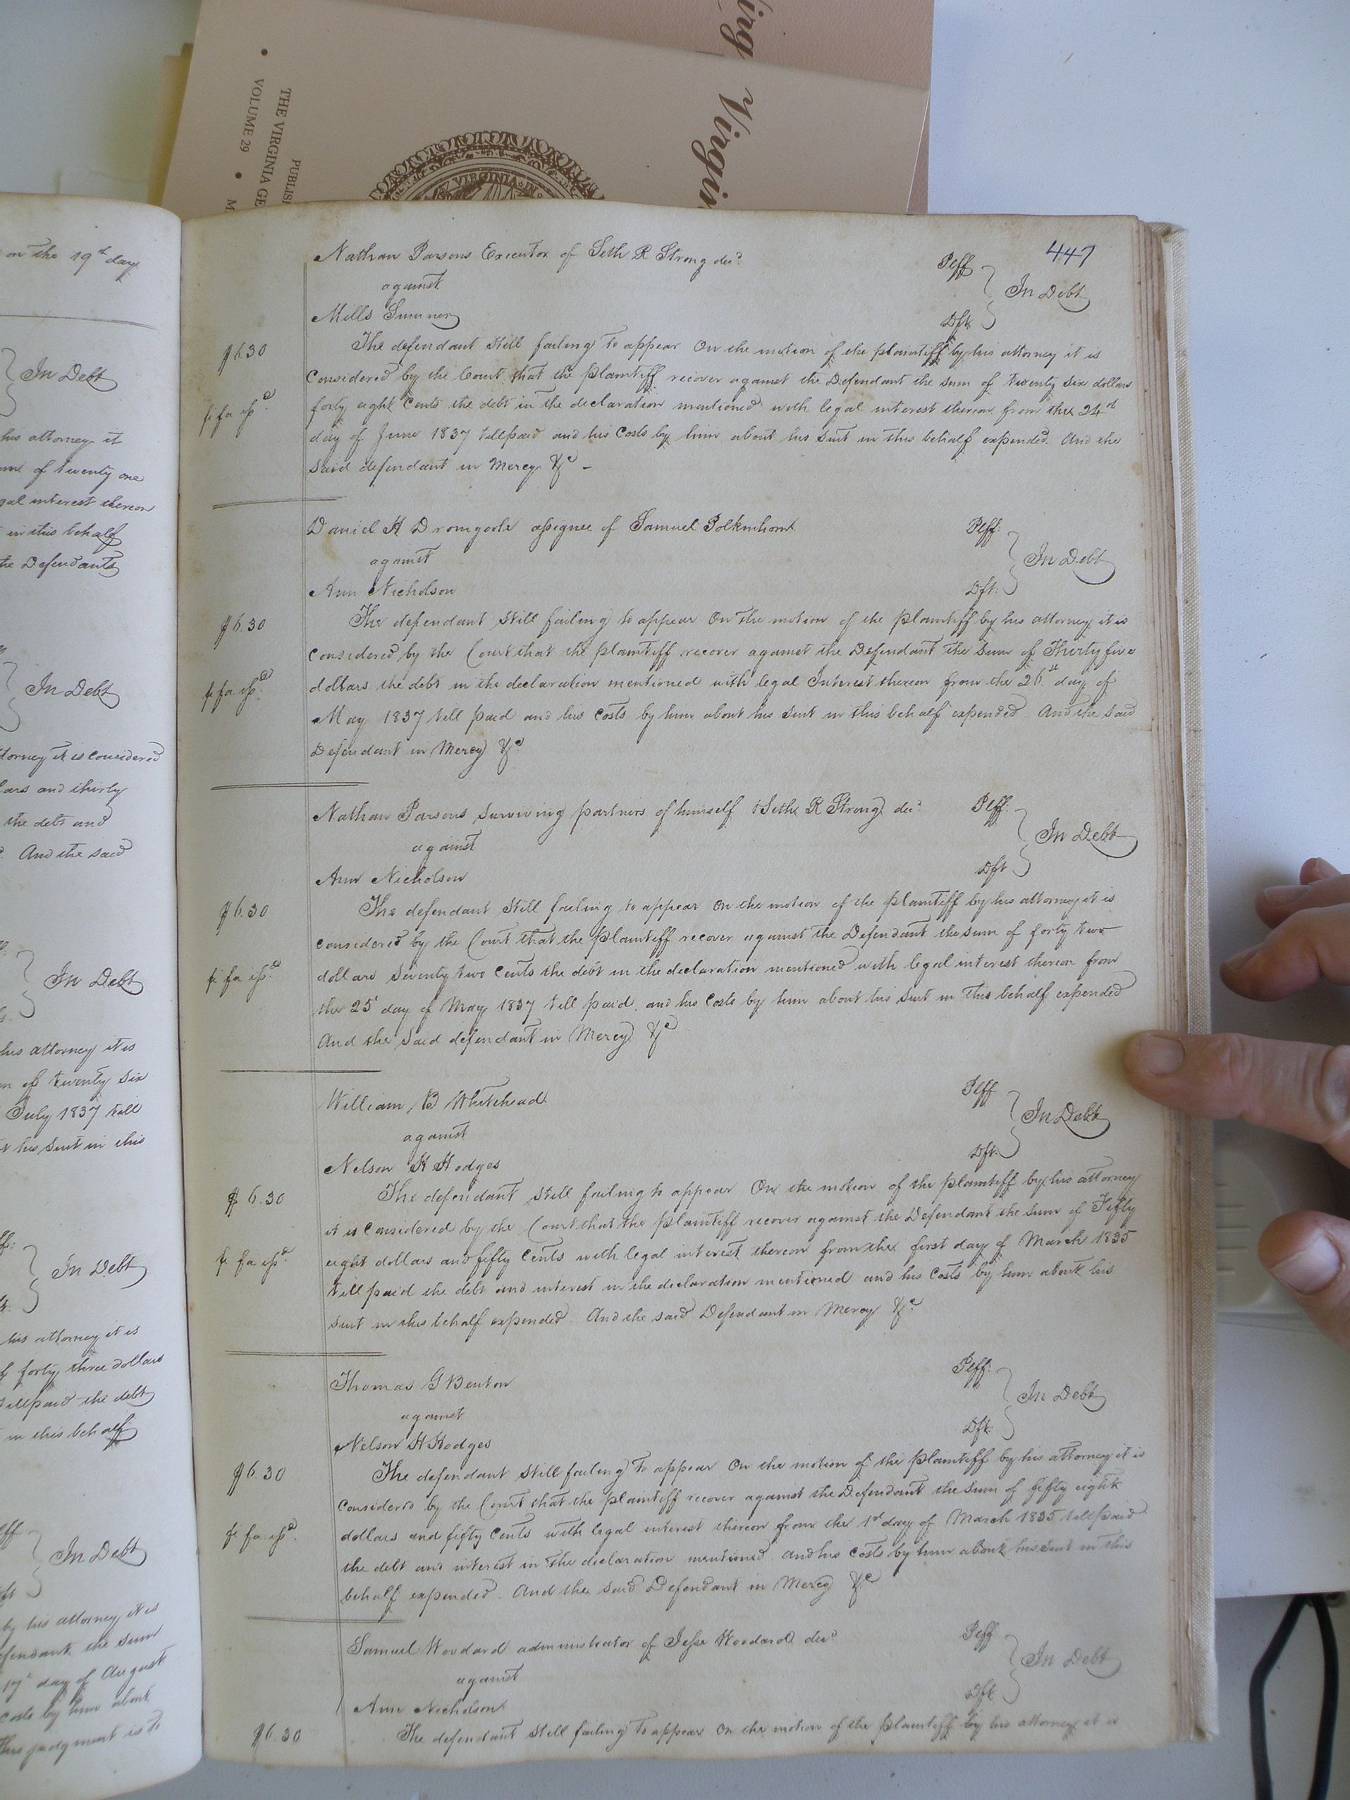 ing Virgin
PUBLIS
THE VIRGINIA GE
VOLUME 29 • M
VIRGINIA IN
on the 19th day
In Debt
his attorney it
me of twenty one
gal interest thereon
in this behalf
the Defendants
In Debt
ttorney it is considered
lars and thirty
the debt and
And the said
In Debt
his attorney it is
m of twenty six
July 1837 till
t his Suit in this
In Debt
his attorney it is
f forty three dollars
till paid the debt
in this behalf
In Debt
by his attorney it is
fendant the sum
17th day of August
costs by him about
This judgment is to
447
Nathan Parsons Executor of Seth R Strong decd Plff
against In Debt
Mills Sumner Dft
$6.30 The defendant still failing to appear On the motion of the plaintiff by his attorney it is
Considered by the Court that the plaintiff recover against the Defendant the sum of twenty six dollars
fi fa issd forty eight Cents the debt in the declaration mentioned with legal interest thereon from the 24th
day of June 1837 till paid and his Costs by him about his Suit in this behalf expended. And the
said defendant in Mercy &c
Daniel H Dromgoole assignee of Samuel Plff
against In Debt
Ann Nicholson Dft.
$6.30 The defendant still failing to appear On the motion of the plaintiff by his attorney it is
Considered by the Court that the plaintiff recover against the Defendant the sum of Thirty five
fi fa issd dollars the debt in the declaration mentioned with legal Interest thereon from the 26st day of
May 1837 till paid and his Costs by him about his Suit in this behalf expended And the said
Defendant in Mercy &c
Nathan Parsons Surviving partners of himself & Seth R Strong decd Plff.
against In Debt
Ann Nicholson Dft
$6.30 The defendant still failing to appear On the motion of the plaintiff by his attorney it is
considered by the Court that the plaintiff recover against the Defendant the sum of forty two
fi fa issd dollars Seventy two Cents the debt in the declaration mentioned with legal interest thereon from
the 25 day of May 1837 till paid, and his Costs by him about his Suit in this behalf expended
And the said defendant in Mercy &c
William B Whitehead Plff
against In Debt
Nelson H Hodges Dft.
$6.30 The defendant still failing to appear On the motion of the plaintiff by his attorney
it is Considered by the Court that the plaintiff recover against the Defendant the sum of Fifty
fi fa issd eight dollars and fifty Cents with legal interest thereon from the first day of March 1835
till paid the debt and interest in the declaration mentioned and his Costs by him about his
Suit in this behalf expended. And the said Defendant in Mercy &c
Thomas G Benton Plff.
against In Debt
Nelson H Hodges Dft.
$6.30 The defendant still failing to appear On the motion of the plaintiff by his attorney it is
considered by the Court that the plaintiff recover against the Defendant the sum of fifty eight
fi fa issd dollars and fifty Cents with legal interest thereon from the 1st day of March 1835 till paid
the debt and interest in the declaration mentioned. and his Costs by him about his Suit in this
behalf expended. And the said Defendant in Mercy &c
Samuel Woodard administrator of Jesse Woodard decd Plff
against In Debt
Ann Nicholson Dft
$6.30 The defendant still failing to appear On the motion of the plaintiff by his attorney it is